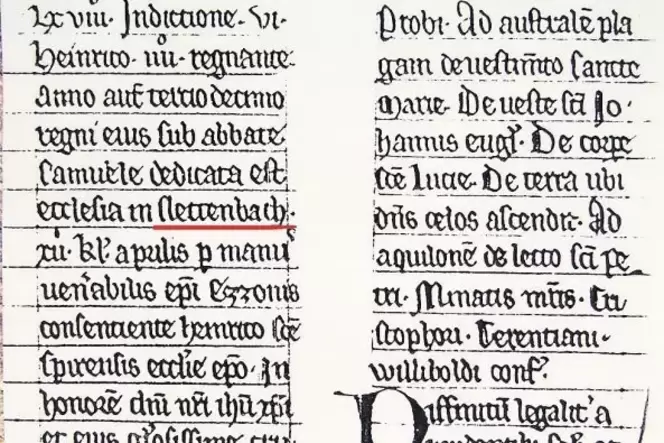 Lx viii. Indictione. vi.
heinrico. iiii.º regnante
anno aut̄ tertio decimo
regni eius sub abbate
samuele dedicata est
ecclesia in slettenbach.
xii. kl̄. aprilis p manū
ven̄abilis ep̄i Ezzonis
consentiente heinrico scē
spirensis ecclīe ep̄o. In
honorē dn̄i nr̄i ihū xp̄i
et eius
Probi. Ad australē pla
gam de vestim̄to sancte
marie. De veste sc̄i Jo
hannis eug̃l. De corpe
scē Lucie. De terra ubi
dn̄s celos ascendit. Ad
aquilonē de lecto sc̄i pe
tri. Minatis mr̄is. Cri
stophori. Terentiani.
williboldi conf̄.
Diffinitū legalit̾ a